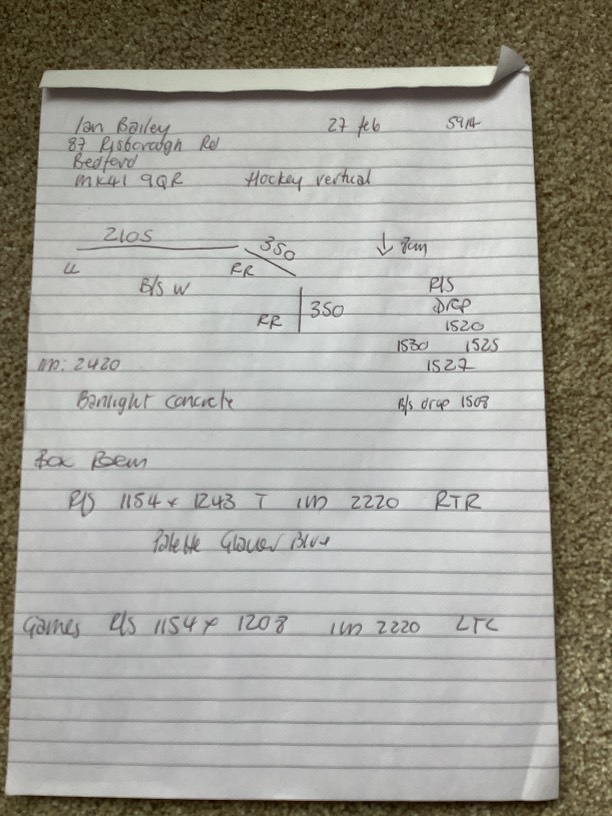 Ian Bailey 27 feb
87 Risborough Rd
Bedford
MK41 9QR Hockey vertical
2105 350 ↓ 8cm
LL RR
B/S W R/S
DRP
RR 350 1520
1530 1525
in: 2420 1527
Banlight concrete B/s drop 1508
Box Room
R/S 1154 x 1243 T in 2220 RTR
Palette Glacier Blue
Games R/S 1154 x 1208 in 2220 LTL